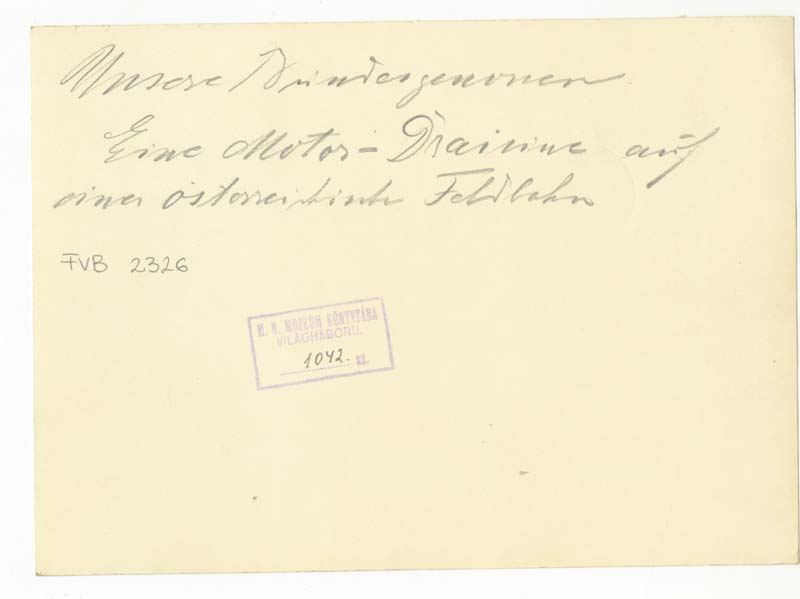 Unsere Bundesgenossen
Eine Motor-Draisine auf
einer österreichischen Feldbahn
FVB 2326
M. N. MUZEUM KÖNYVTÁRA
VILÁGHÁBORU.
1042. sz.